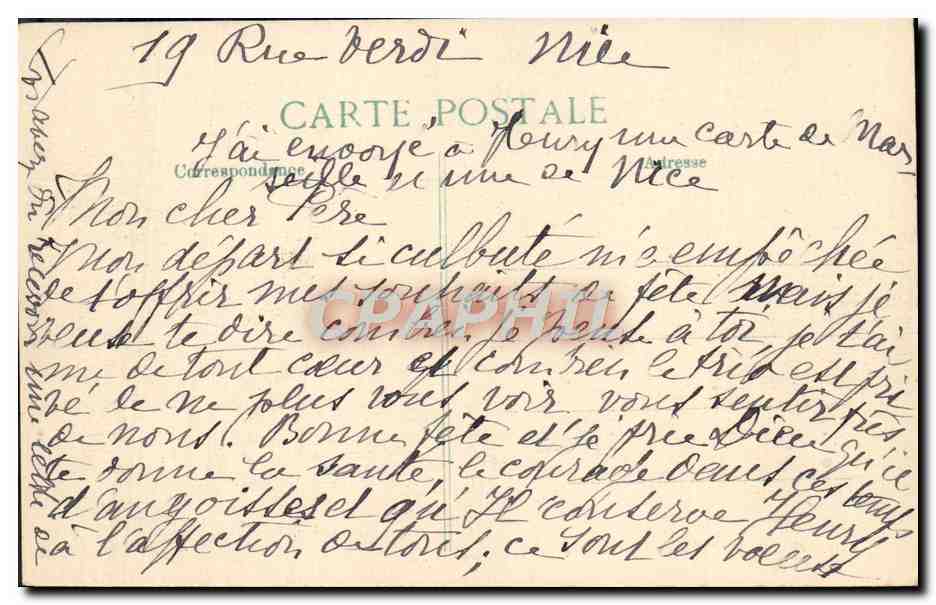 19 Rue Verdi Nice
CARTE POSTALE
J'ai envoyé à Henry une carte de Mar
Correspondance
Adresse
seille une de Nice
Mon cher Père
Mon départ si culbuté m'a empêchée
de t'offrir mes souhaits de fête mais je
veux te dire combien je pense à toi, je t'ai
me de tout cœur et combien le trio est pri
vé de ne plus vous voir vous sentir près
de nous. Bonne fête et je prie Dieu qu'il
te donne la santé, le courage dans ces temps
d'angoisses et qu'Il conserve Henry
à l'affection de tous, ce sont les vœux
CPAPHIL
du recevoir une lettre de